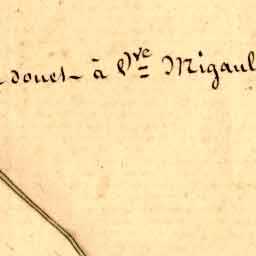 douet à Vve Migaul